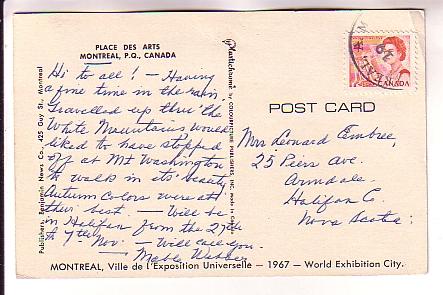 PLACE DES ARTS
MONTREAL, P.Q., CANADA
Hi to all! - Having
a fine time in the rain
Travelled up thru' the
White Mountains would
liked to have stopped
off at Mt Washington
to walk in its beauty
Autumn Colors were at
their best. - Will be
in Halifax from the 27th
to 7th Nov. - Will call you.
- Mable
Publishers: Benjamin News Co., 425 Guy St., Montreal
Plastichrome by COLOURPICTURE PUBLISHERS, INC.
CANADA
POST CARD
Mrs Leonard Embree,
25 Piers Ave.
Armdale.
Halifax Co.
Nova Scotia.
MONTREAL, Ville de l'Exposition Universelle - 1967 - World Exhibition City.